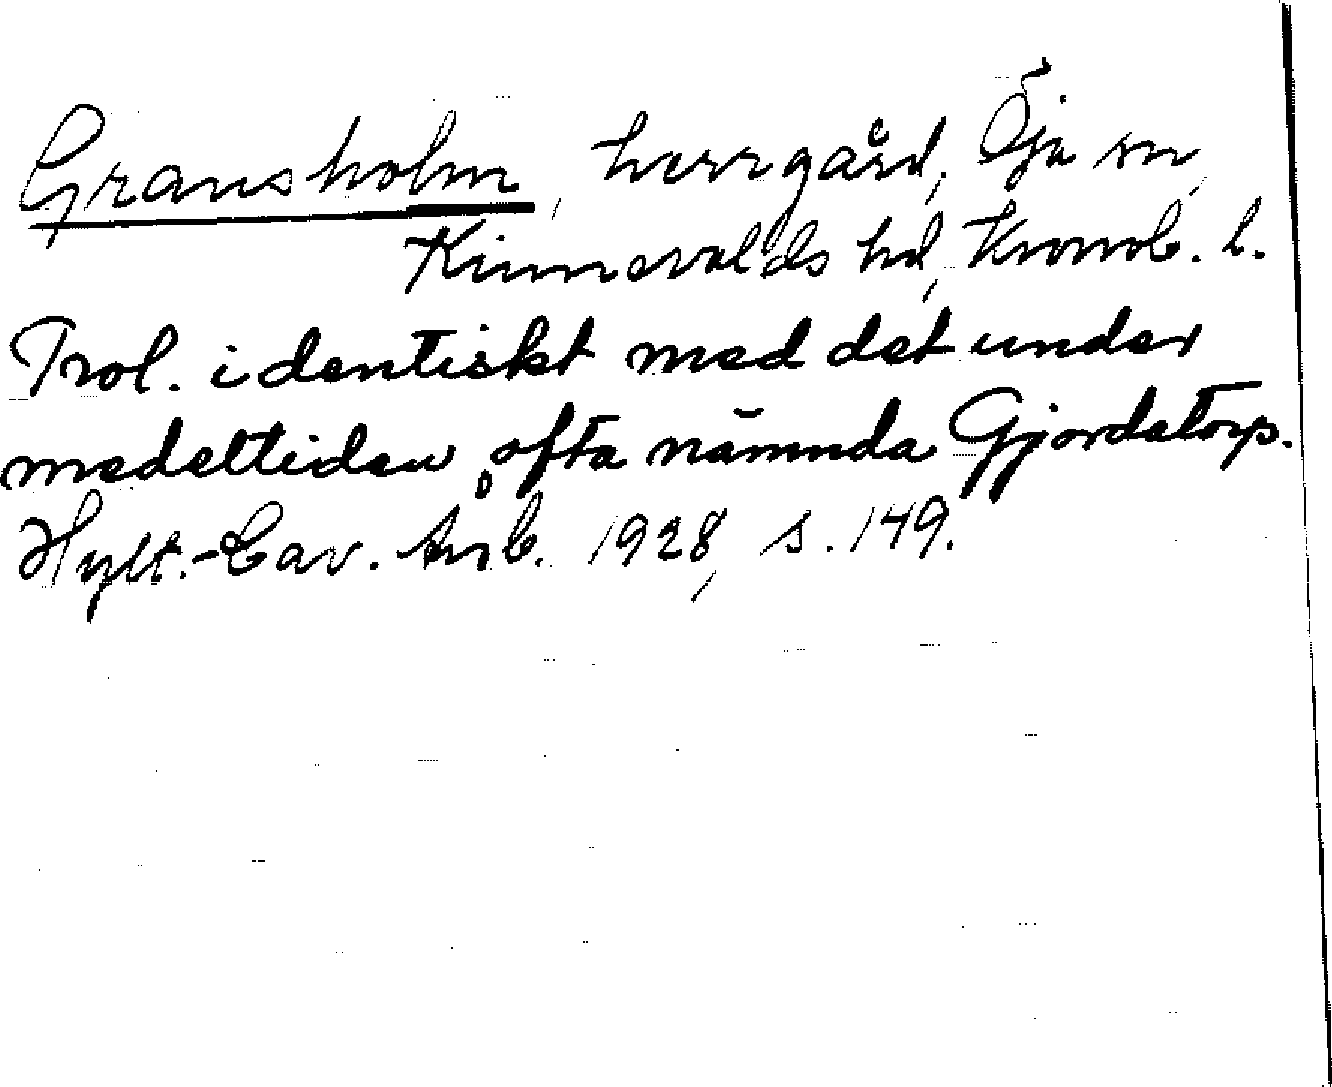 Gransholm, herrgård, Öja sn,
Kinnevalds hd, Kronob. l.
Trol. identiskt med det under
medeltiden ofta nämnda Gjordatorp.
Hylt.-Cav. Årsb. 1928, s. 149.